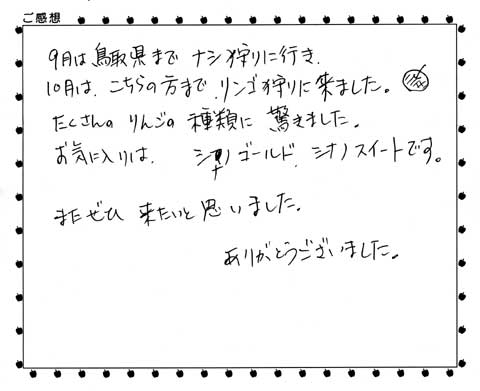 ご感想
9月は鳥取県まで ナシ狩りに行き、
10月は、こちらの方まで リンゴ狩りに来ました。
たくさんの りんごの 種類に 驚きました。
お気に入りは、 シナノゴールド、シナノスイートです。
またぜひ 来たいと 思いました。
ありがとうございました。